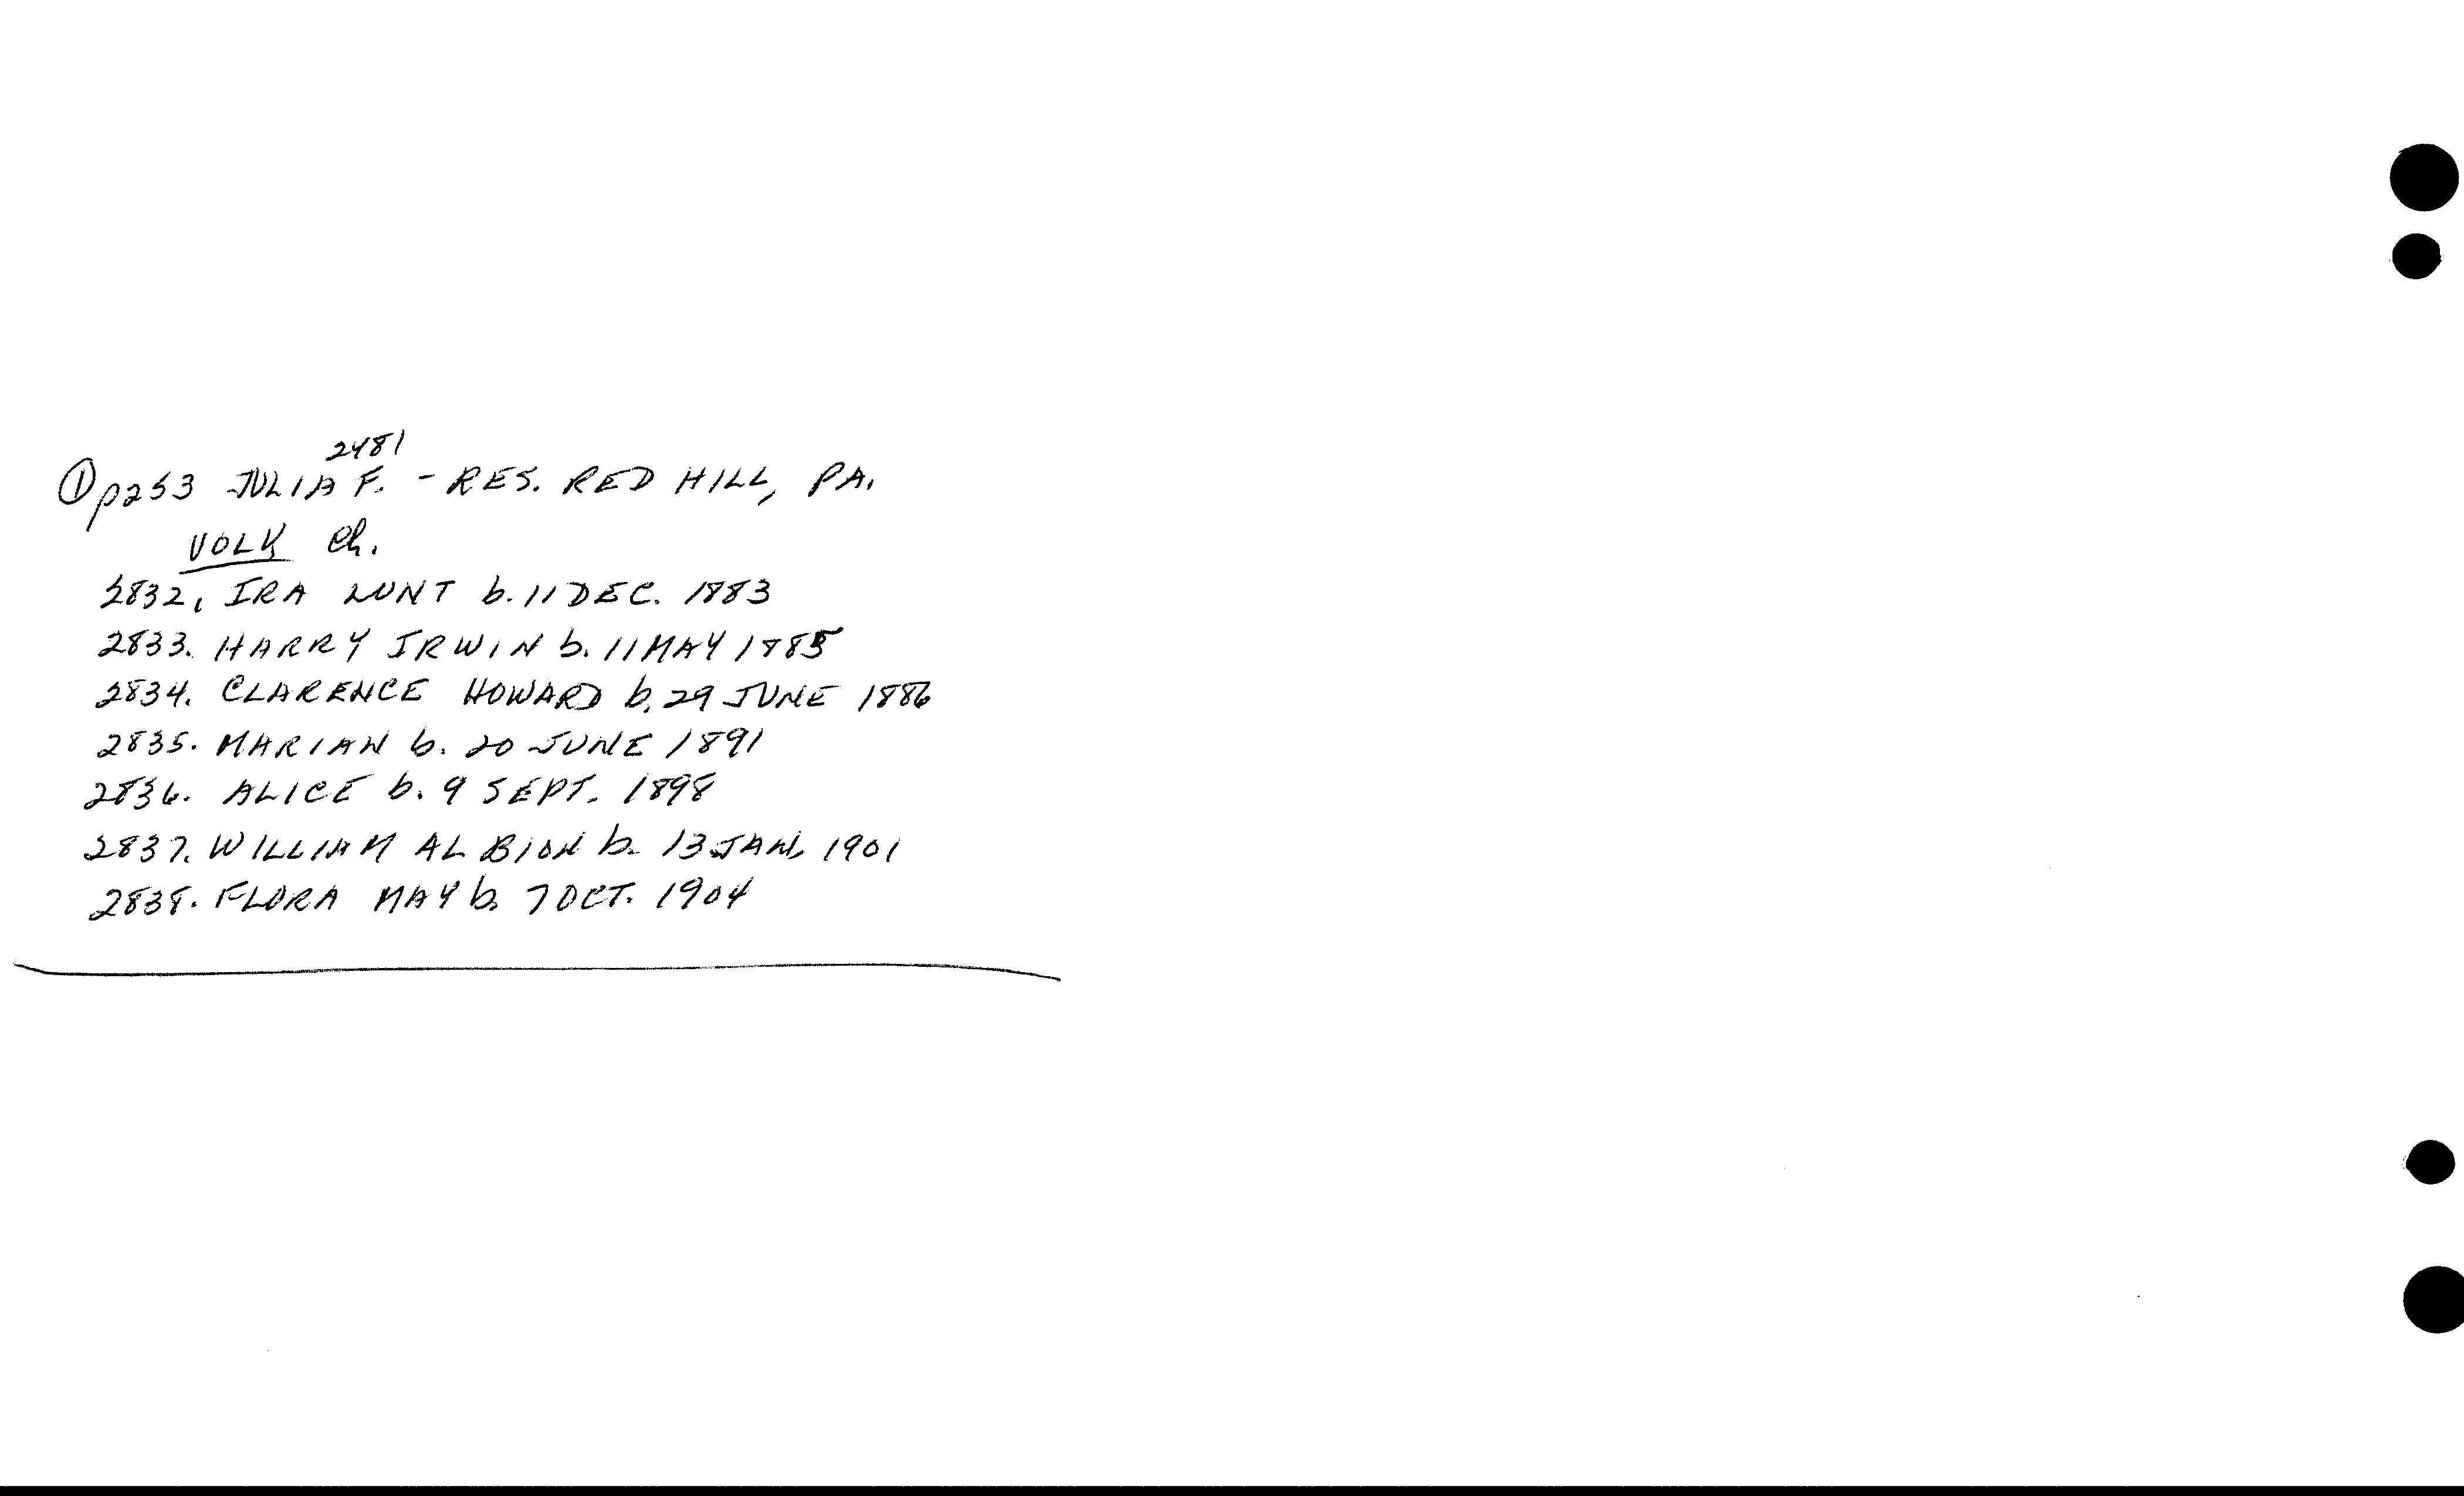 2481
① p253 JULIA F. - RES. RED HILL, PA.
VOLK Ch.
2832. IRA LUNT b. 11 DEC. 1883
2833. HARRY IRWIN b. 11 MAY 1885
2834. CLARENCE HOWARD b. 29 JUNE 1886
2835. MARIAN b. 20 JUNE 1891
2836. ALICE b. 9 SEPT. 1898
2837. WILLIAM ALBION b. 13 JAN. 1901
2838. FLORA MAY b. 7 OCT. 1904